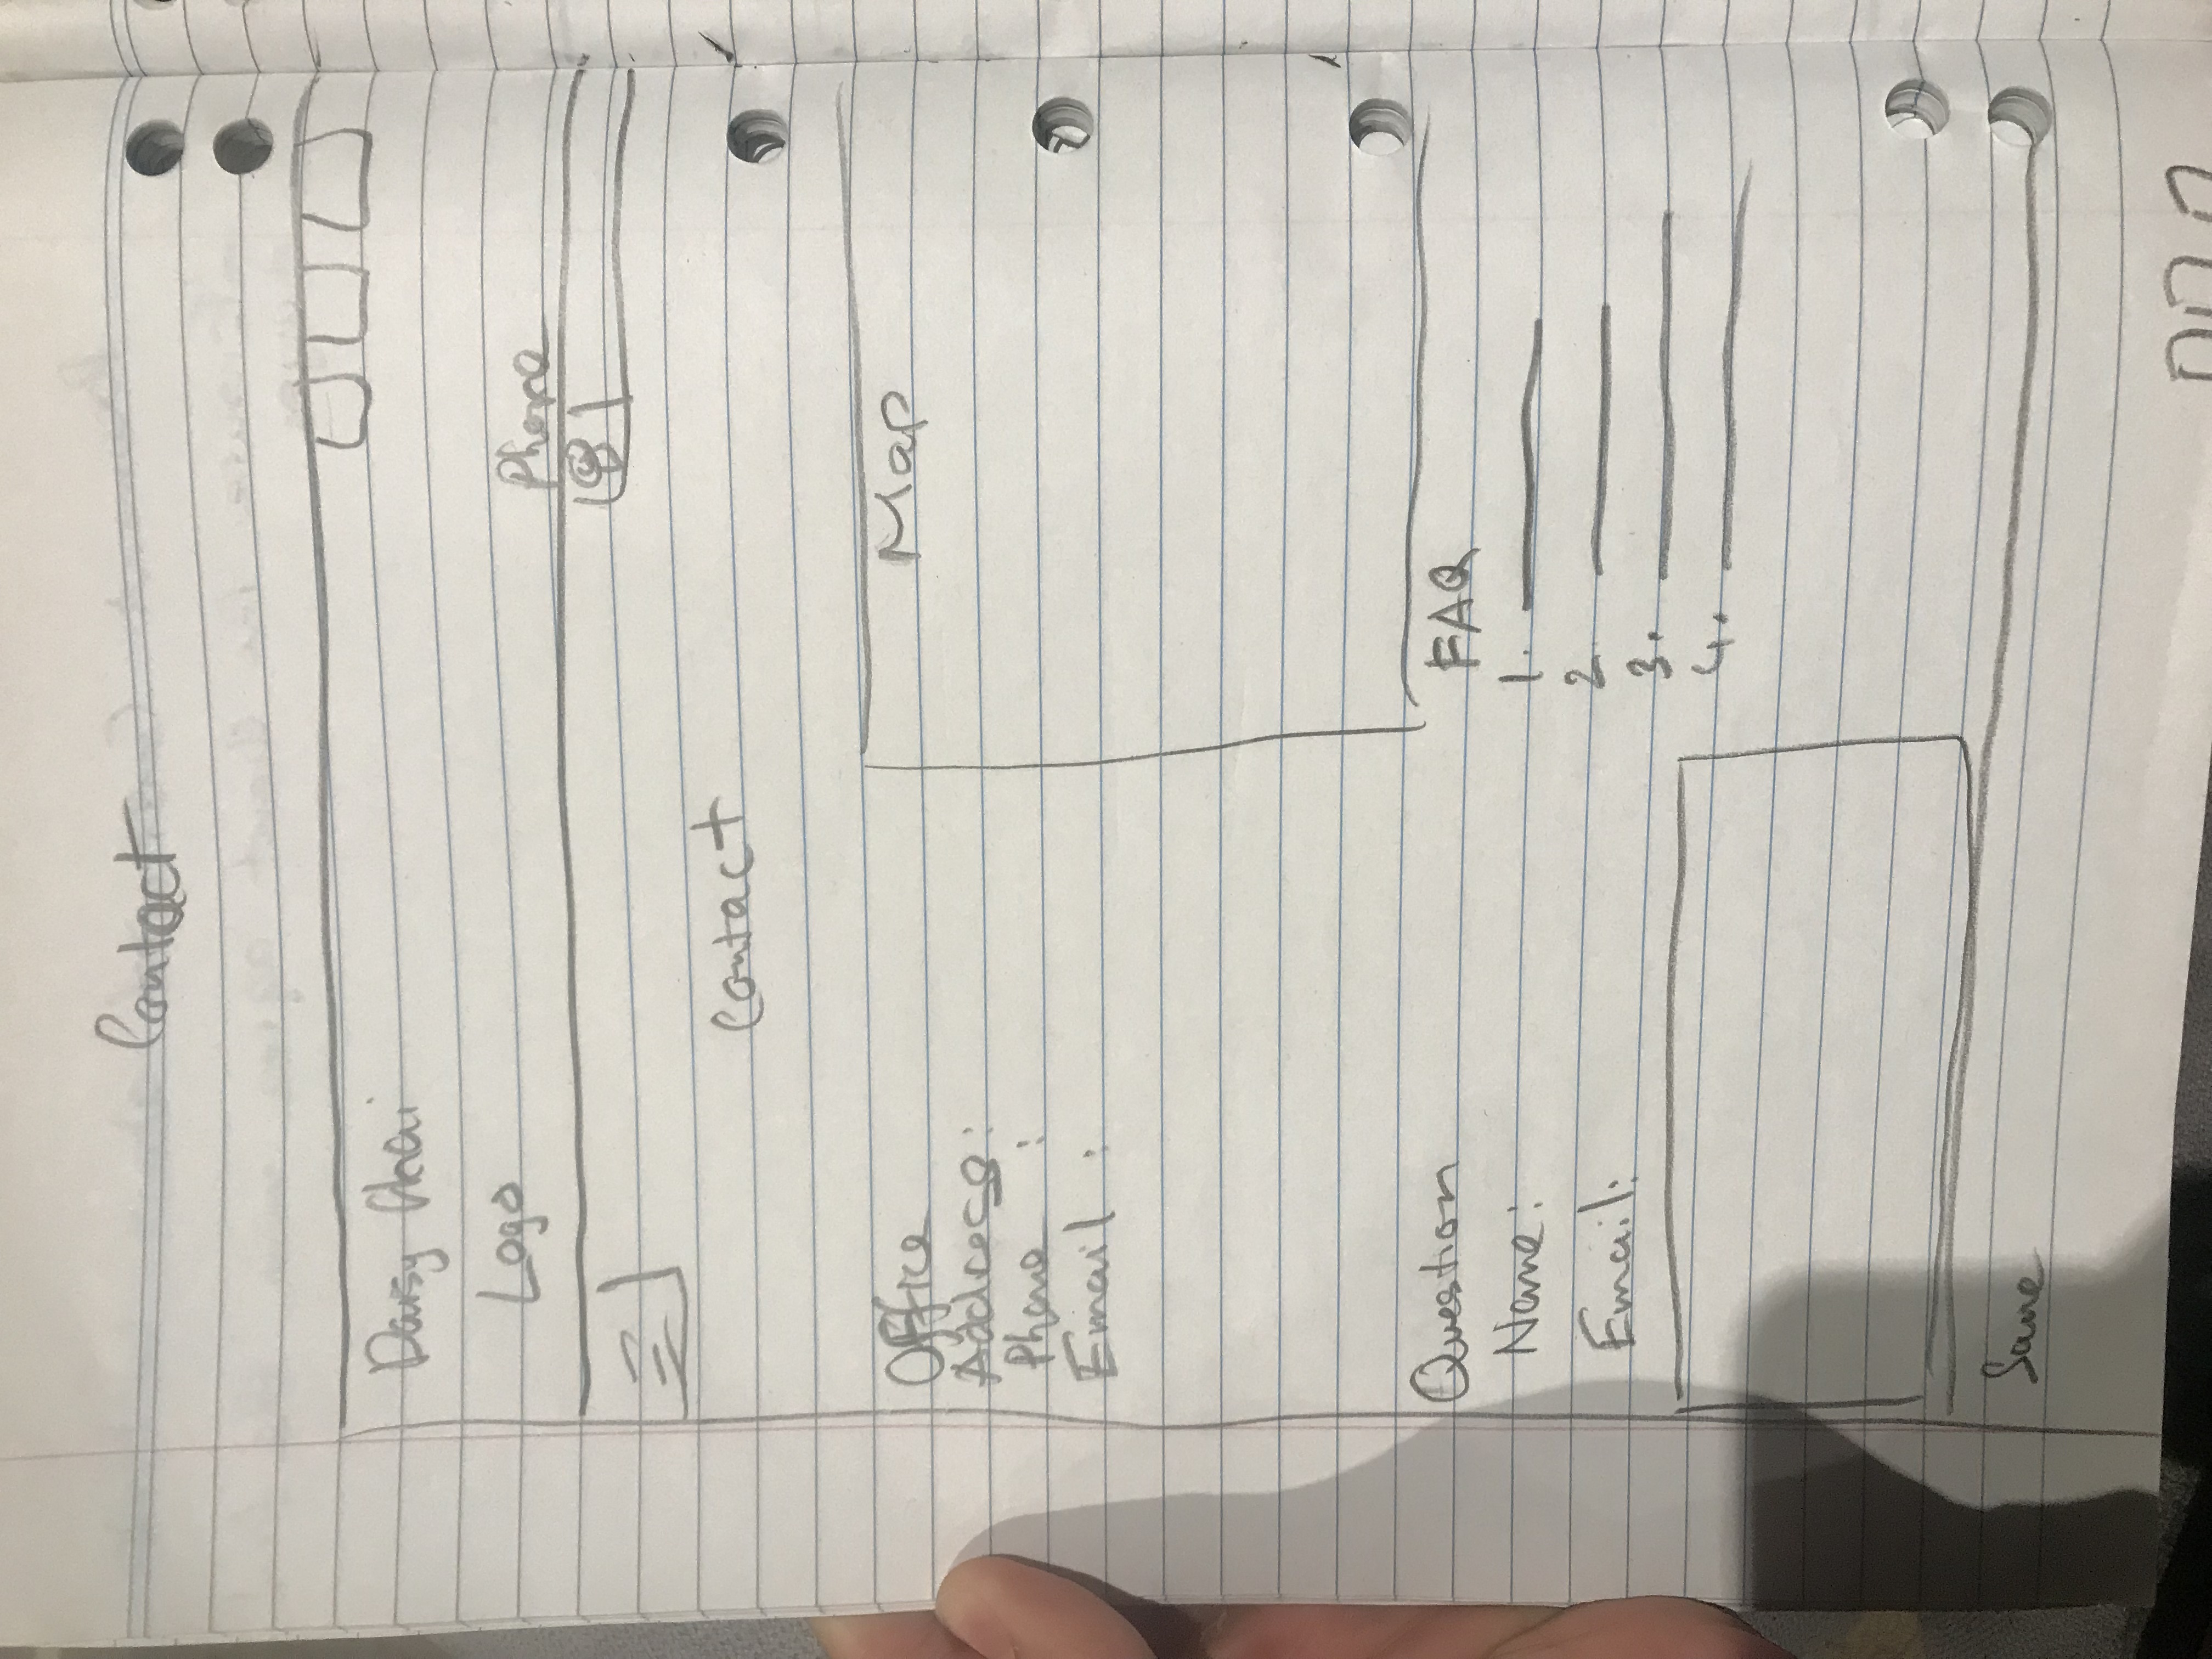 Contact
Daisy Chai
Logo
Phone
Contact
Office
Address:
Phone :
Email :
Map
Question
Name:
Email:
FAQ
1.
2.
3.
4.
Same